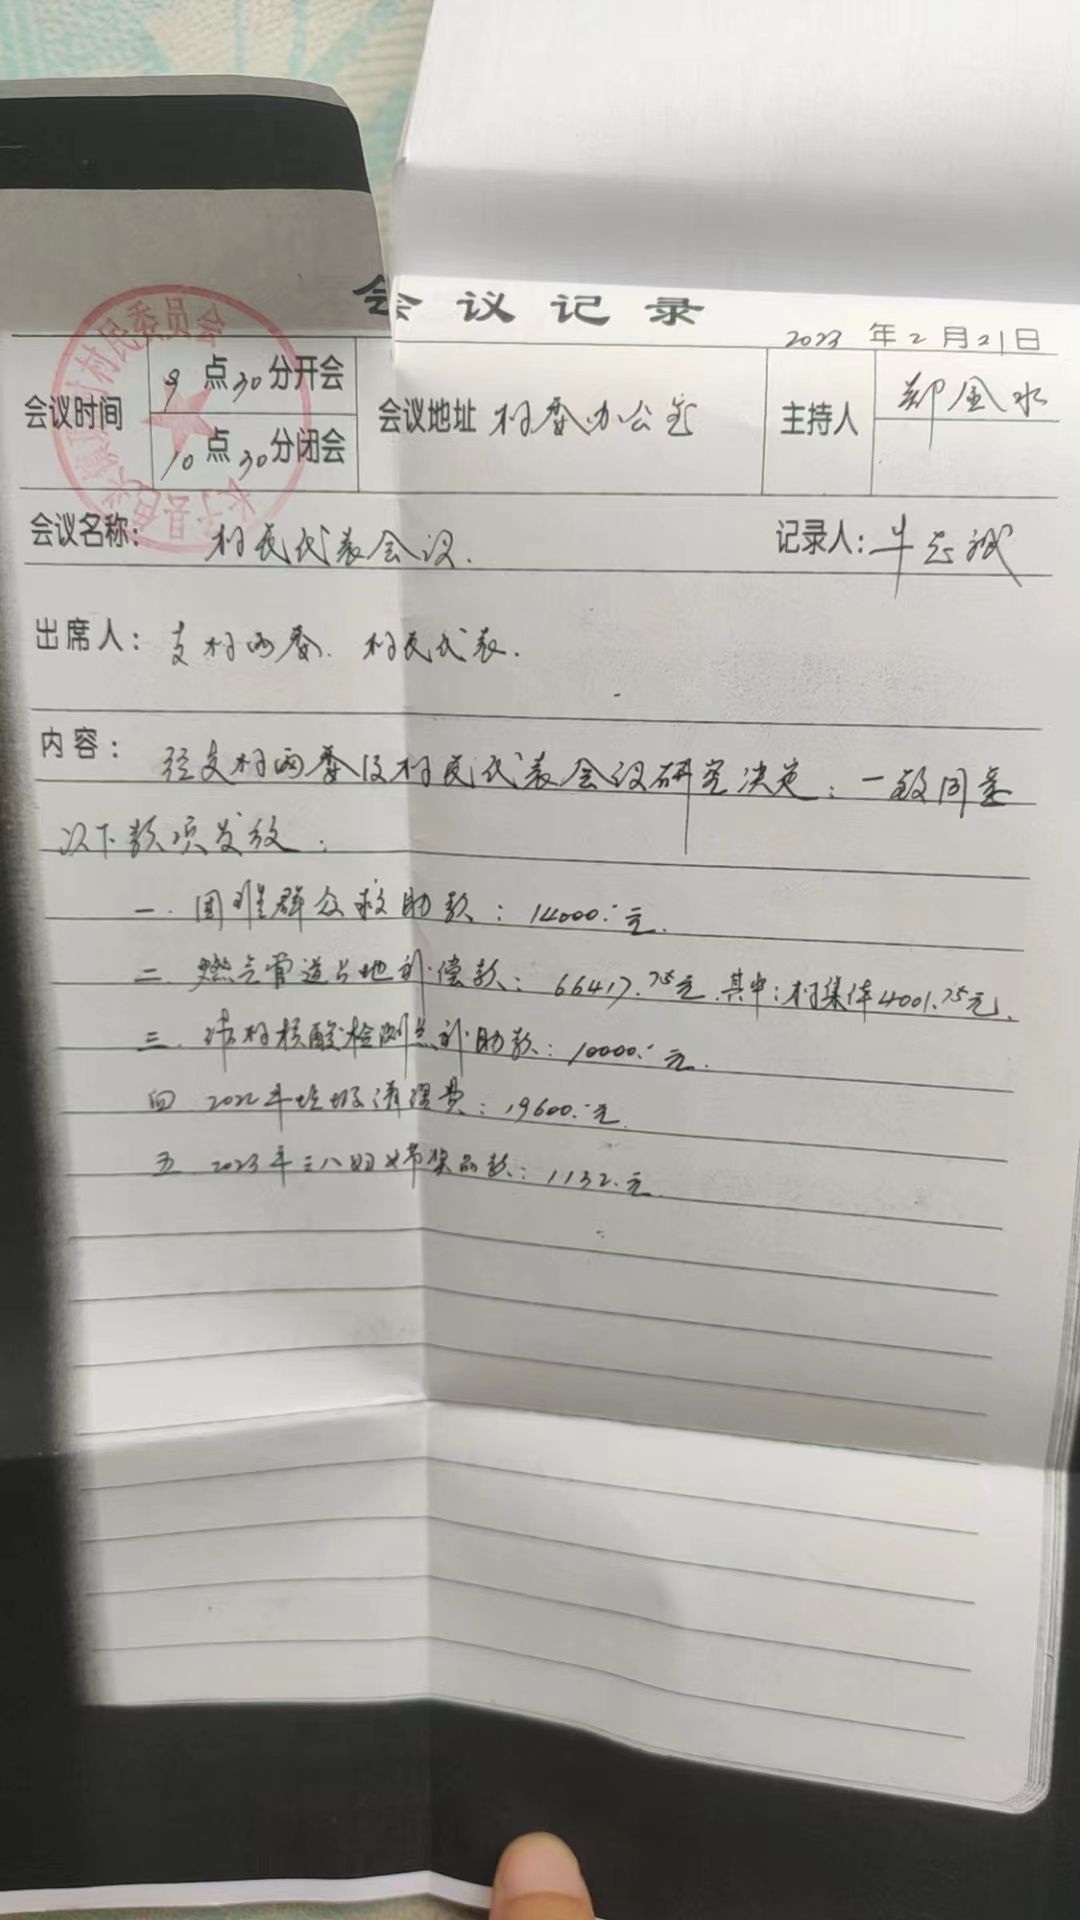 会议记录
2023年2月21日
会议时间
9点30分开会
10点30分闭会
会议地址 村委办公室
主持人
郑金水
村民委员会
长子县
会议名称: 村民代表会议.
记录人: 牛志诚
出席人: 支村两委. 村民代表.
内容: 经支村两委及村民代表会议研究决定: 一致同意
以下款项发放:
一. 困难群众救助款: 14000.-元.
二. 燃气管道占地补偿款: 66417.75元. 其中: 村集体4001.75元.
三. 村核酸检测点补助款: 10000.-元.
四 2022年垃圾清理费: 19600.-元.
五 2023年三八妇女节奖品款: 1132.元.